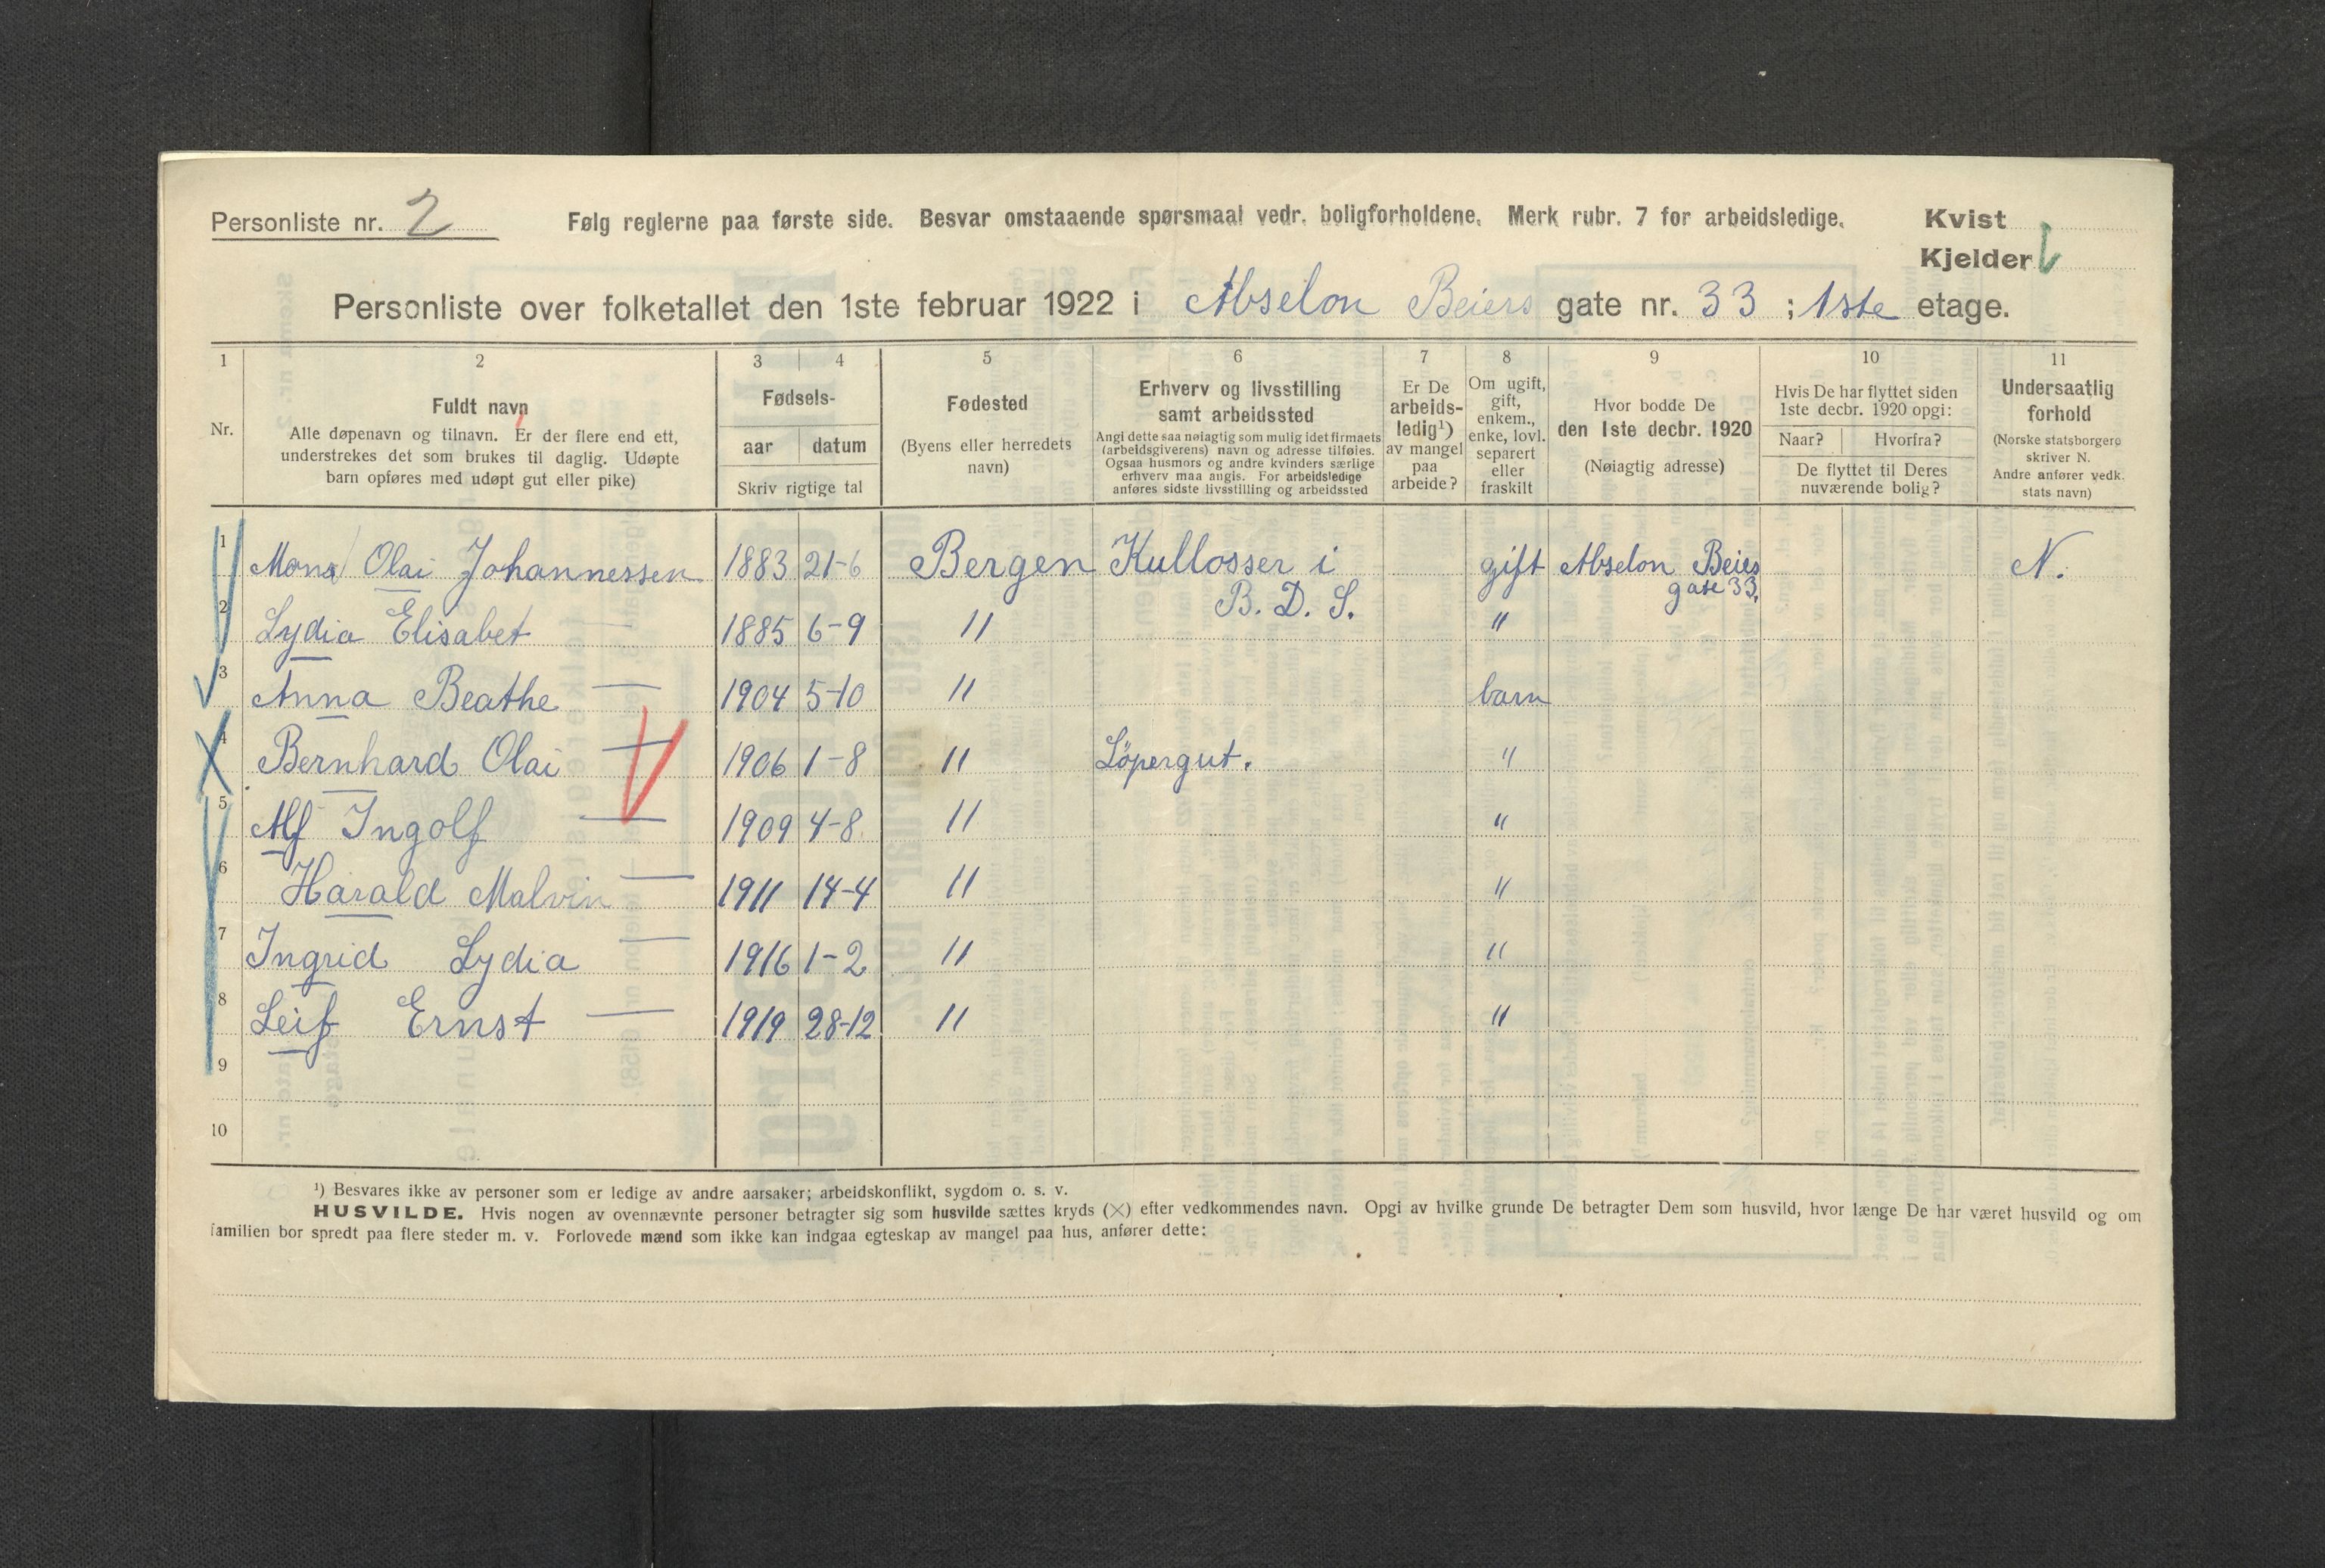 Personliste nr. 2 Følg reglerne paa første side. Besvar omstaaende spørsmaal vedr. boligforholdene. Merk rubr. 7 for arbeidsledige. Kvist
Kjelder
Personliste over folketallet den 1ste februar 1922 i Abselon Beiers gate nr. 33 ; 1ste etage.
1 2 3 4 5 6 7 8 9 10 11
Nr.
Fuldt navn
Alle døpenavn og tilnavn. Er der flere end ett,
understrekes det som brukes til daglig. Udøpte
barn opføres med udøpt gut eller pike)
Fødsels-
aar datum
Skriv rigtige tal
Fødested
(Byens eller herredets
navn)
Erhverv og livsstilling
samt arbeidssted
Angi dette saa nøiagtig som mulig idet firmaets
(arbeidsgiverens) navn og adresse tilføies.
Ogsaa husmors og andre kvinders særlige
erhverv maa angis. For arbeidsledige
anføres sidste livsstilling og arbeidssted
Er De
arbeids-
ledig¹)
av mangel
paa
arbeide?
Om ugift,
gift,
enkem.,
enke, lovl.
separert
eller
fraskilt
Hvor bodde De
den 1ste decbr. 1920
(Nøiagtig adresse)
Hvis De har flyttet siden
1ste decbr. 1920 opgi:
Naar? Hvorfra?
De flyttet til Deres
nuværende bolig?
Undersaatlig
forhold
(Norske statsborgere
skriver N.
Andre anfører vedk.
stats navn)
1 Mons Olai Johannessen 1883 21-6 Bergen Kullosser i gift Abselon Beies N.
B. D. S. gate 33.
2 Lydia Elisabet — 1885 6-9 " "
3 Anna Beathe — 1904 5-10 " barn
4 Bernhard Olai — 1906 1-8 " Löpergut. "
5 Alf Ingolf — 1909 4-8 " "
6 Harald Malvin — 1911 14-4 " "
7 Ingrid Lydia — 1916 1-2 " "
8 Leif Ernst — 1919 28-12 " "
9
10
¹) Besvares ikke av personer som er ledige av andre aarsaker; arbeidskonflikt, sygdom o. s. v.
HUSVILDE. Hvis nogen av ovennævnte personer betragter sig som husvilde sættes kryds (×) efter vedkommendes navn. Opgi av hvilke grunde De betragter Dem som husvild, hvor længe De har været husvild og om
familien bor spredt paa flere steder m. v. Forlovede mænd som ikke kan indgaa egteskap av mangel paa hus, anfører dette: